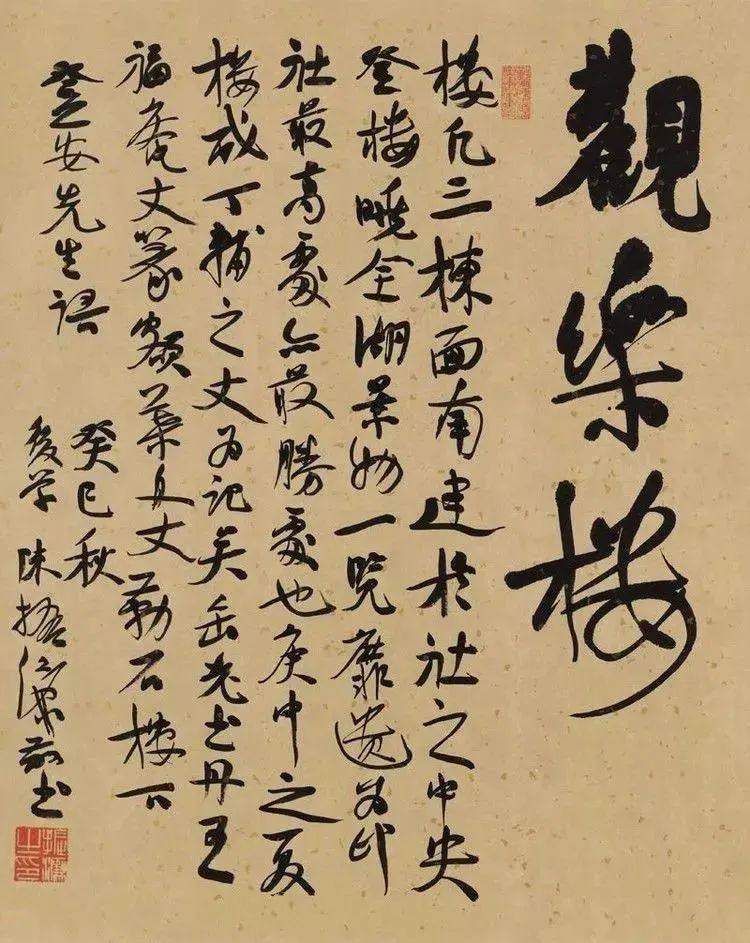 觀樂樓
樓凡三棟面南建於社之中央
登樓曉全湖景物一覽靡遺為印
社最高處亦最勝處也庚申之夏
樓成丁輔之丈為記吳缶老書丹王
福庵丈篆額葉舟丈勒石樓下
安先生語
癸巳秋
後學陳振濂并書